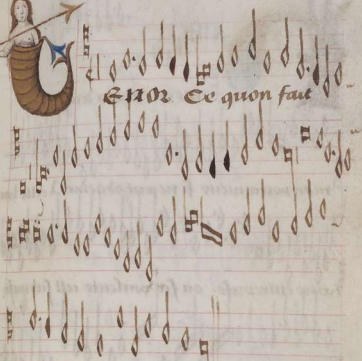 TENOR Ce quon fait